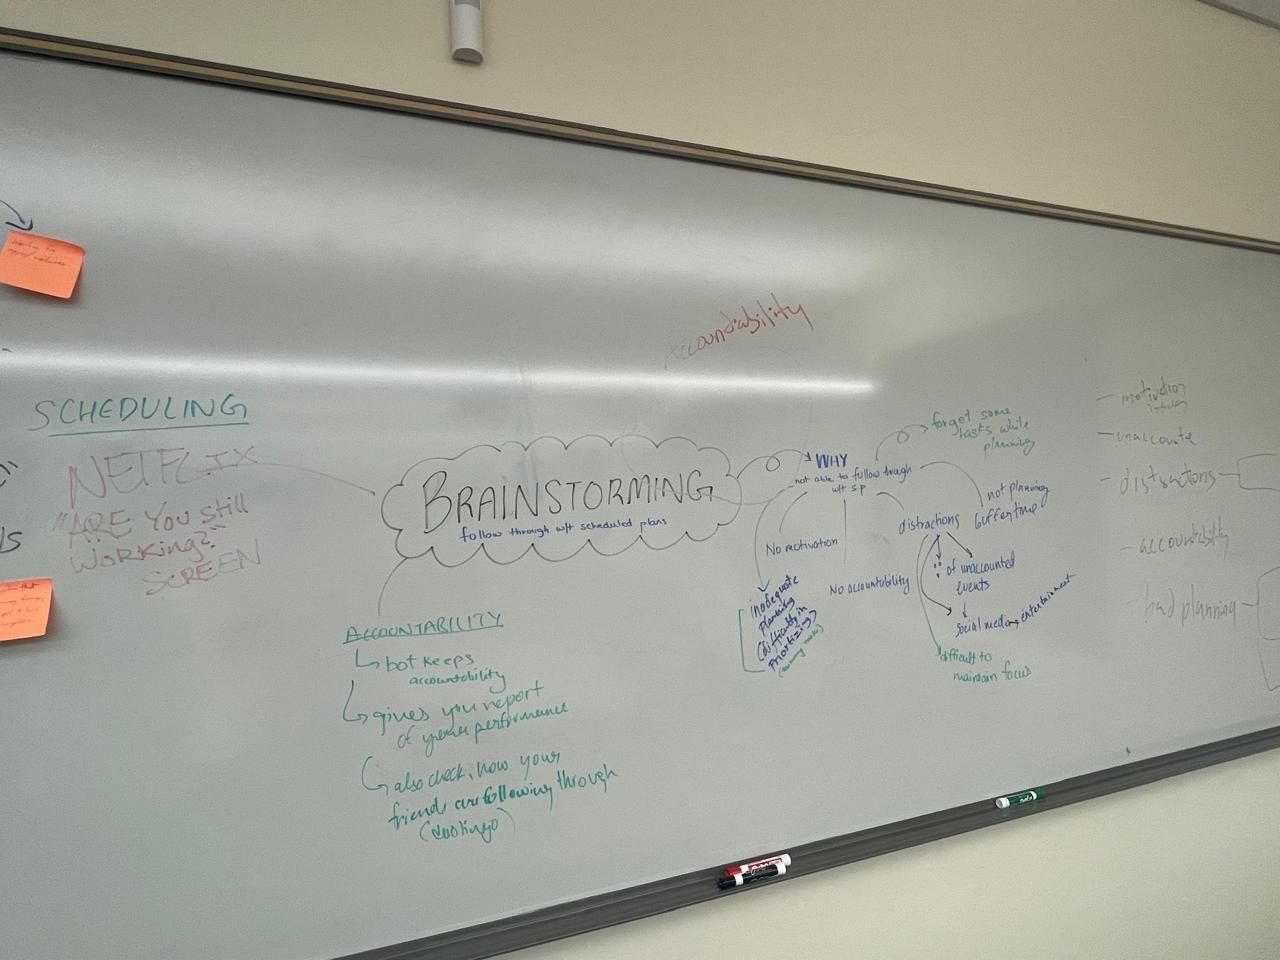 Accountability
SCHEDULING
NETFLIX
"ARE You Still
WORKING?"
SCREEN
BRAINSTORMING
follow through wft scheduled plans
ACCOUNTABILITY
bot keeps
accountability
gives you report
of your performance
also check, how your
friends are following through
(duolingo)
WHY
not able to follow trough
wft s.p
forgot some
tasks while
planning
not planning
buffer time
distractions
of unaccounted
events
social media, entertainment
difficult to
maintain focus
No motivation
No accountability
inadequate
planning
(difficulty in
prioritizing)
- motivation
issues
- unaccounte
- distractions
- accountability
- bad planning